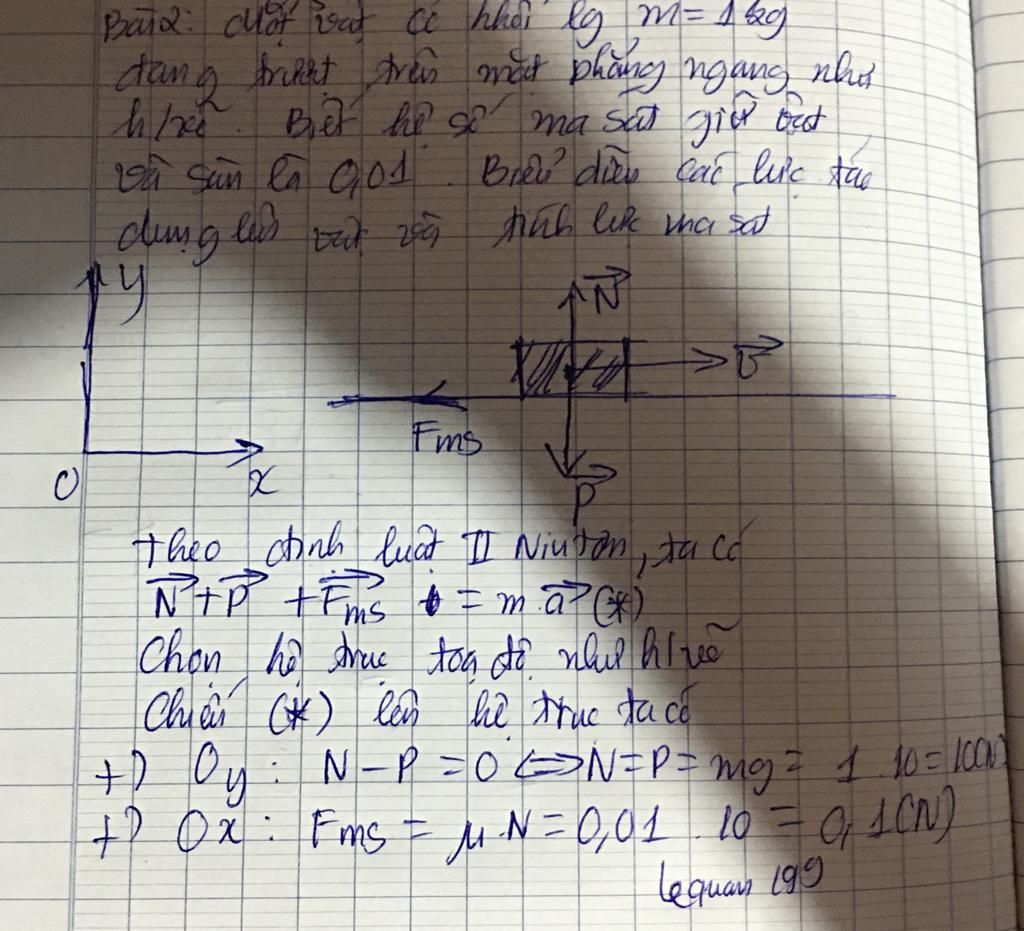 Bài 2: Một vật có khối lg m = 1kg
đang trượt trên mặt phẳng ngang như
h/vẽ. Biết hệ số ma sát giữ vật
và sàn là 0,01. Biểu diễn các lực tác
dụng lên vật và tính lực ma sát
y
N
v
Fms
O
x
P
Theo định luật II Niutơn, ta có
N + P + Fms = m.a (*)
Chọn hệ trục toạ độ như h/vẽ
Chiếu (*) lên hệ trục ta có
+) Oy: N - P = 0 <=> N = P = mg = 1.10 = 10(N)
+) Ox: Fms = μ.N = 0,01.10 = 0,1(N)
lequan199